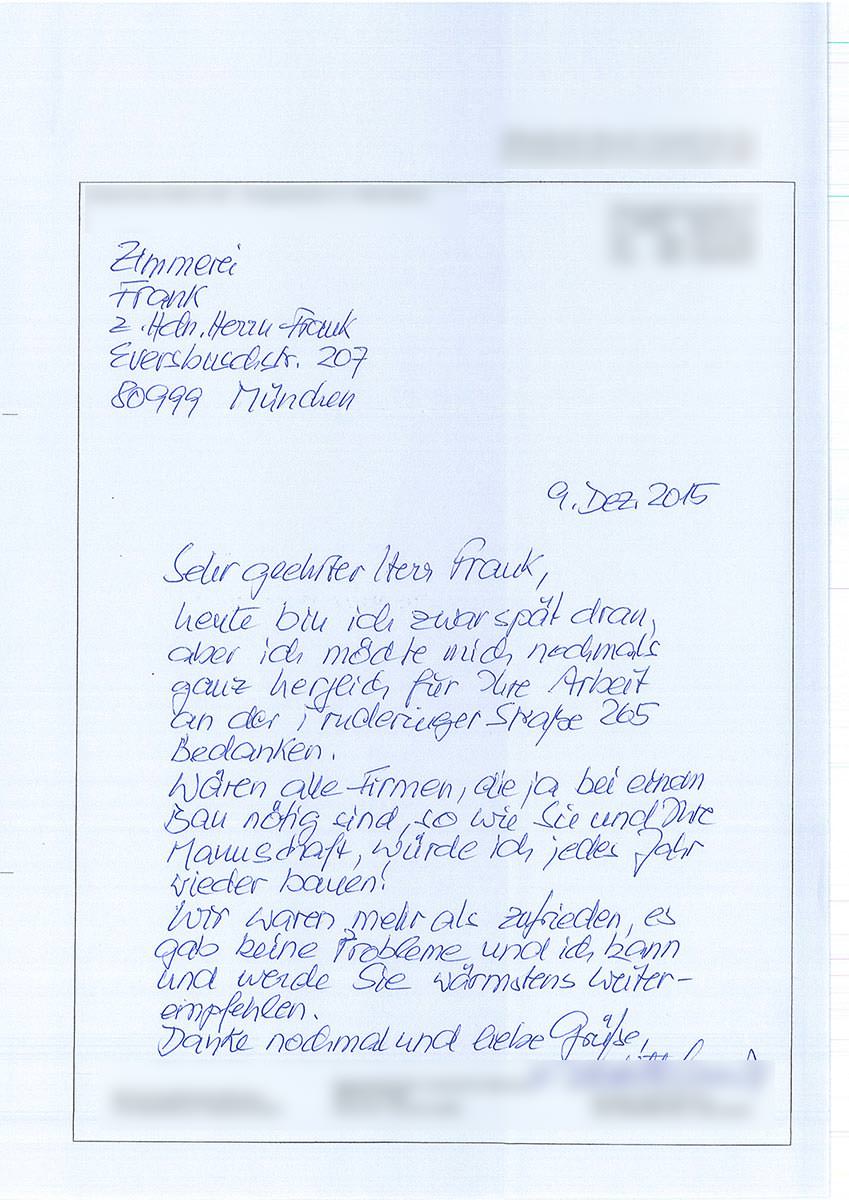 Zimmerei
Frank
z. Hdn. Herrn Frank
Eversbuschstr. 207
80999 München
9. Dez. 2015
Sehr geehrter Herr Frank,
heute bin ich zwar spät dran,
aber ich möchte mich nochmals
ganz herzlich für Ihre Arbeit
an der Truderinger Straße 265
Bedanken.
Wären alle Firmen, die ja bei einem
Bau nötig sind, so wie Sie und Ihre
Mannschaft, würde ich jedes Jahr
wieder bauen!
Wir waren mehr als zufrieden, es
gab keine Probleme und ich kann
und werde Sie wärmstens weiter-
empfehlen.
Danke nochmal und liebe Grüße,